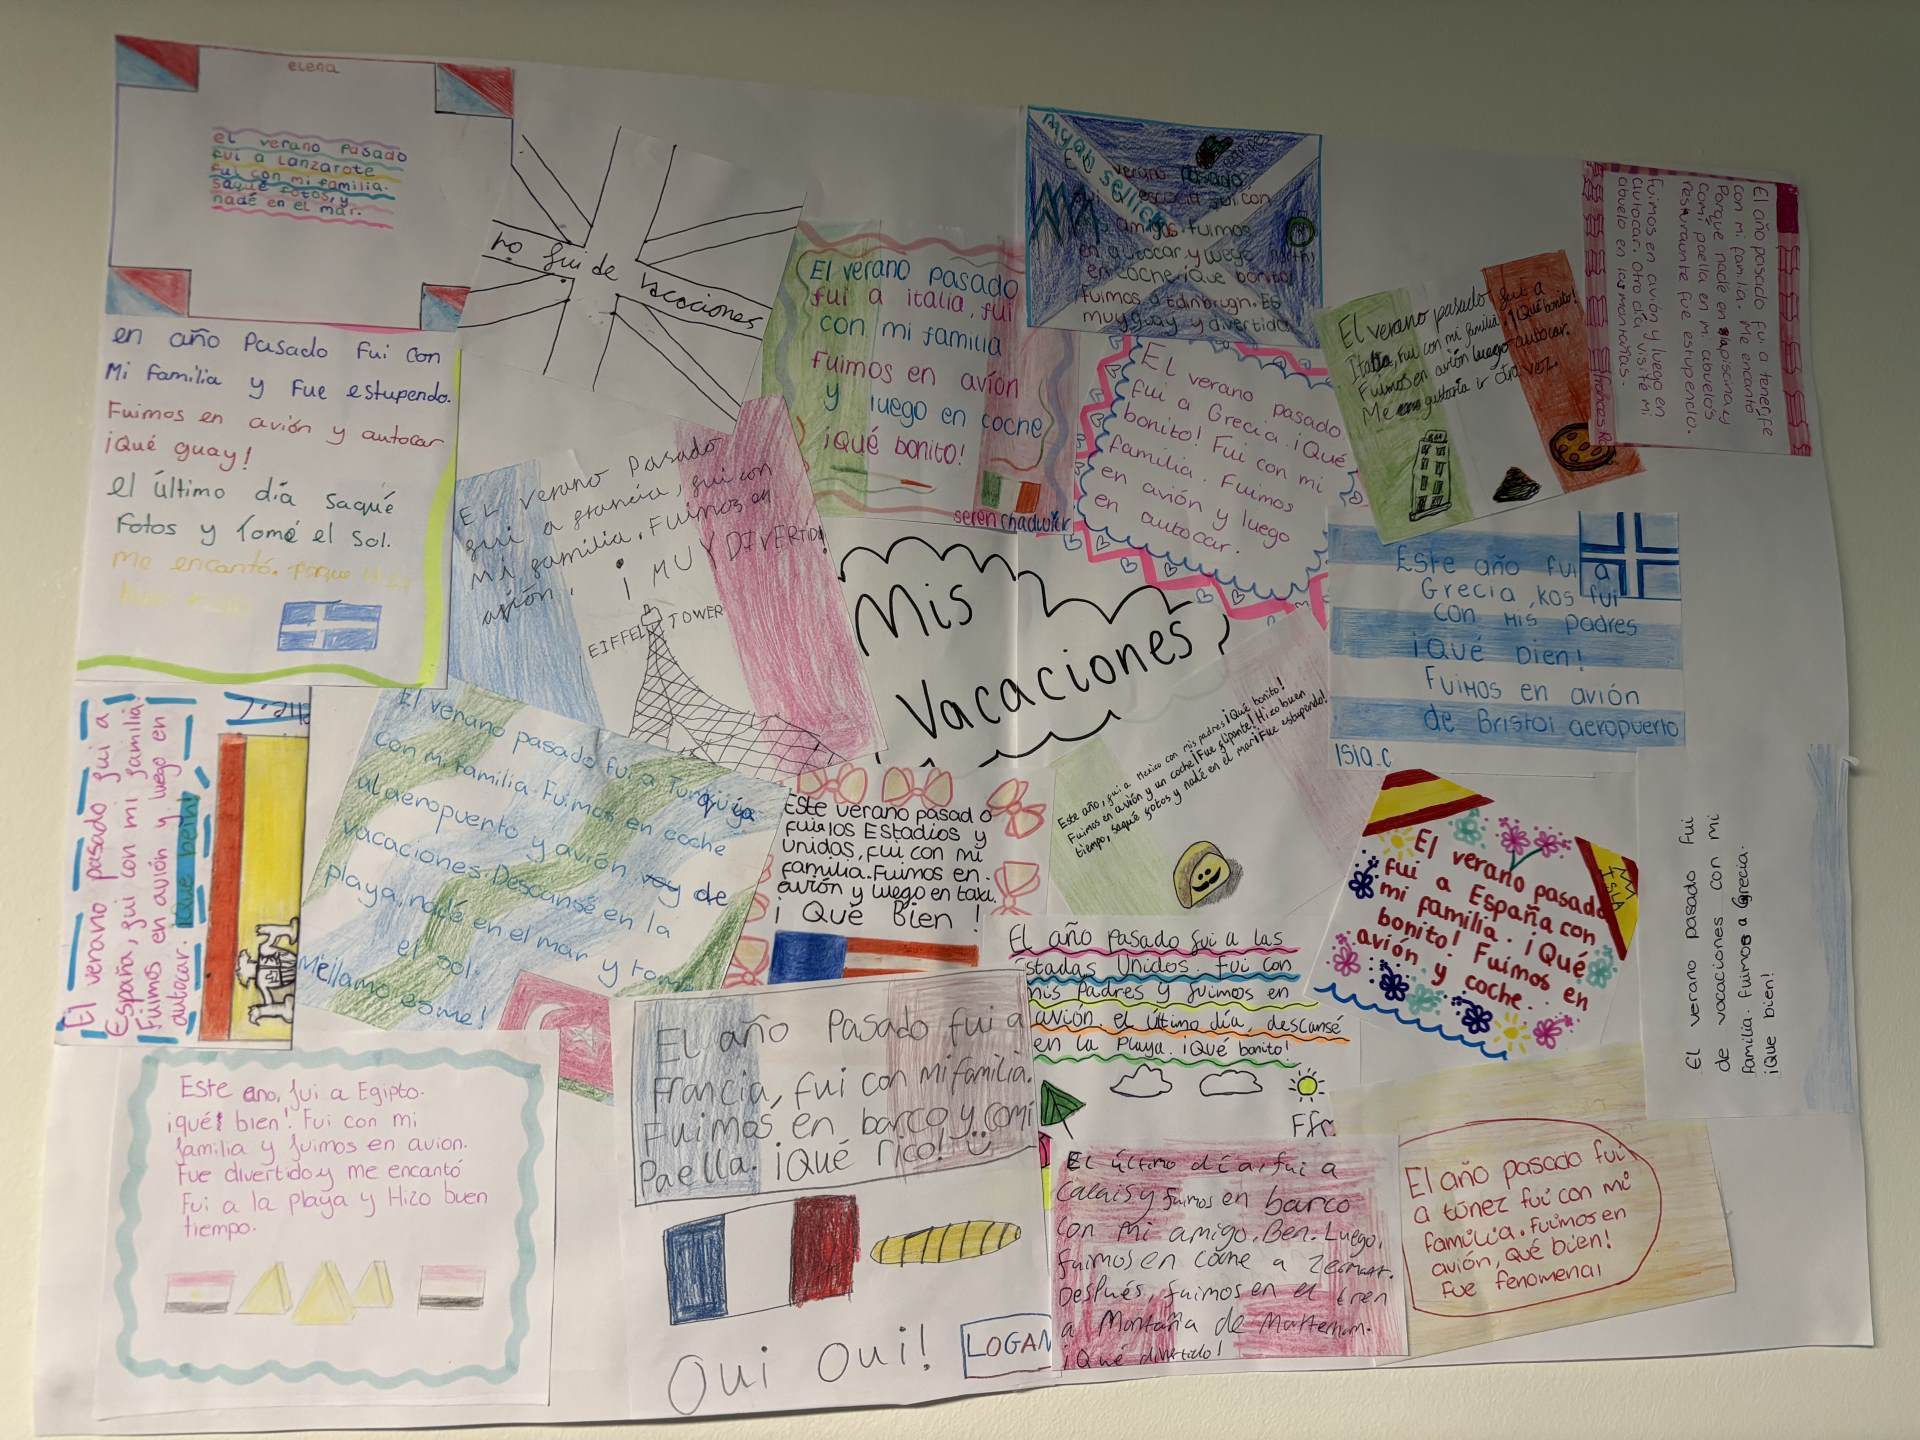 elena
el verano pasado
fui a Lanzarote
fui con mi familia.
saqué fotos, y
nadé en el mar.
no fui de vacaciones
en año Pasado Fui con
Mi familia y Fue estupendo.
Fuimos en avión y autocar
¡Qué guay!
el último día saqué
Fotos y Tomé el sol.
Me encantó.
EL verano pasado
fui a francia, fui con
mi familia. Fuimos en
avión. ¡MUY DIVERTIDO!
EIFFEL TOWER
El verano pasado
fui a italia, fui
con mi familia
Fuimos en avión
y luego en coche
¡Qué bonito!
seren chadwick
verano pasado
escocia fui con
amigos. fuimos
en autocar y luego
en coche ¡Que bonito!
Fuimos a Edinbrugh. Es
muy guay y divertido
EL verano pasado
fui a Grecia. ¡Qué
bonito! Fui con mi
familia. Fuimos
en avión y luego
en autocar.
El verano pasado, fui a
Italia, Fui con mi familia. ¡Qué bonito!
Fuimos en avión luego autocar.
Me gustaria ir otra vez.
El año pasado fui a tenerife
con mi familia. Me encanto
Porque nadé en piscina y
comí paella en Mi abuelos
resturante fue estupendo.
Fuimos en avión y luego en
autocar. Otro día visité mi
abuelo en las montañas.
Mis
Vacaciones
Este año fui a
Grecia, Kos fui
con mis padres
¡Qué bien!
Fuimos en avión
de Bristol aeropuerto
Isla.c
El verano pasado fui a
España, fui con mi familia
Fuimos en avión y luego en
autocar.
El verano pasado fui a Turquía
con mi familia. Fuimos en coche
al aeropuerto y avión de
vacaciones. Descansé en la
playa, nadé en el mar y tomé
el sol.
Mellamo esme!
Este verano pasado
fui a los Estadios y
Unidos, fui con mi
familia. Fuimos en
avión y luego en taxi.
¡Qué Bien!
Este año, fui a Mexico con mis padres ¡Qué bonito!
Fuimos en avión y un coche ¡Fue flipante! Hizo buen
tiempo, saqué fotos y nadé en el mar ¡Fue estupendo!
El verano pasado
fui a España con
mi familia. ¡Qué
bonito! Fuimos en
avión y coche.
ISLA
El verano pasado fui
de vacaciones con mi
familia. fuimos a Grecia.
¡Que bien!
Este ano, fui a Egipto.
¡qué bien! Fui con mi
familia y fuimos en avion.
Fue divertido y me encantó
Fui a la playa y Hizo buen
tiempo.
El año Pasado fui a
Francia, fui con mi familia.
Fuimos en barco y comí
Paella. ¡Qué rico!
Oui Oui!
LOGAN
El año pasado fui a las
Estadas Unidos. Fui con
mis Padres y fuimos en
avión. el último día, descansé
en la playa. ¡Qué bonito!
El último día, fui a
Calais y fuimos en barco
con mi amigo, Ben. Luego,
fuimos en coche a Zermatt.
Después, fuimos en el tren
a Montaña de Matterhorn.
¡Qué divertido!
El año pasado fui
a túnez fui con mi
familia. Fuimos en
avión, Qué bien!
Fue fenomenal